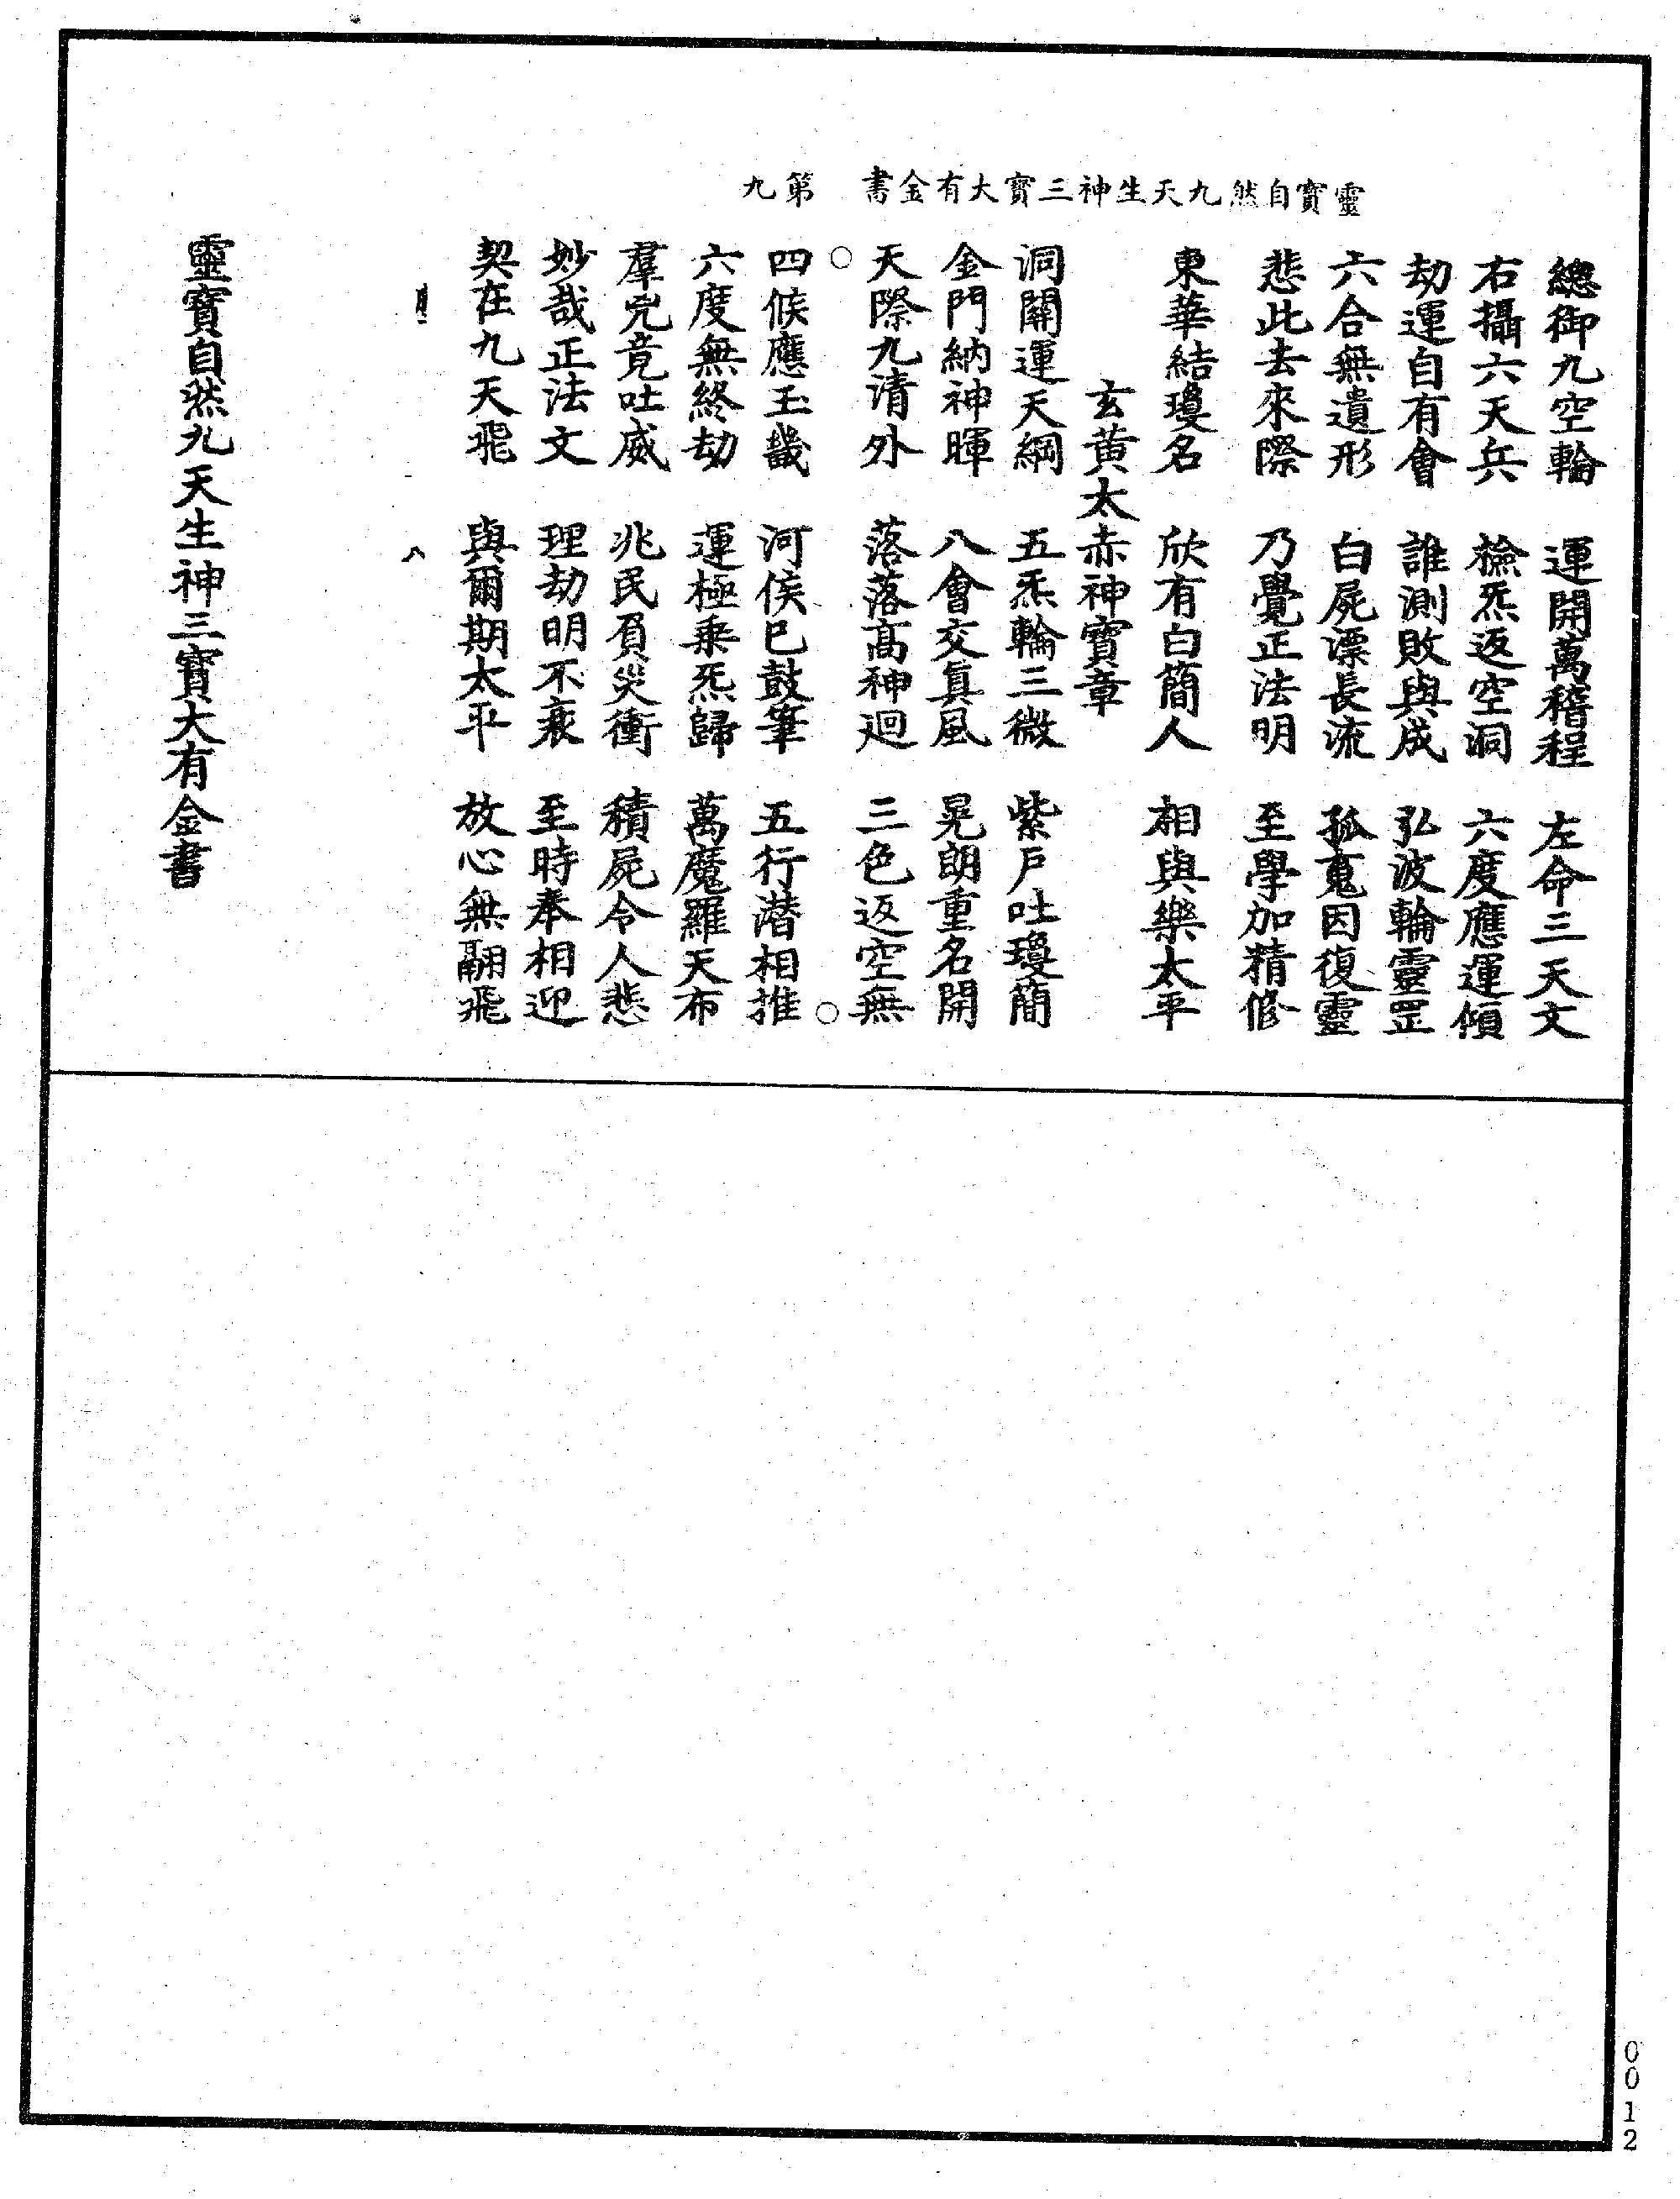 靈寶自然九天生神三寶大有金書 第九
總御九空輪 運開萬稽程 左命三天文
右攝六天兵 檢炁返空洞 六度應運傾
劫運自有會 誰測敗與成 弘波輪靈罡
六合無遺形 白屍漂長流 孤䰟因復靈
悲此去來際 乃覺正法明 至學加精修
東華結瓊名 欣有白簡人 相與樂太平
玄黄太赤神寶章
洞關運天綱 五炁輪三微 紫戶吐瓊簡
金門納神暉 八會交真風 晃朗重名開
天際九清外 落落高神迴 三色返空無
○ ○
四候應玉畿 河侯已鼓筆 五行潜相推
六度無終劫 運極乗炁歸 萬魔羅天布
羣兇竟吐威 兆民負災衝 積屍令人悲
妙哉正法文 理劫明不衰 至時奉相迎
契在九天飛 與爾期太平 放心無翮飛
八
靈寶自然九天生神三寶大有金書
0012